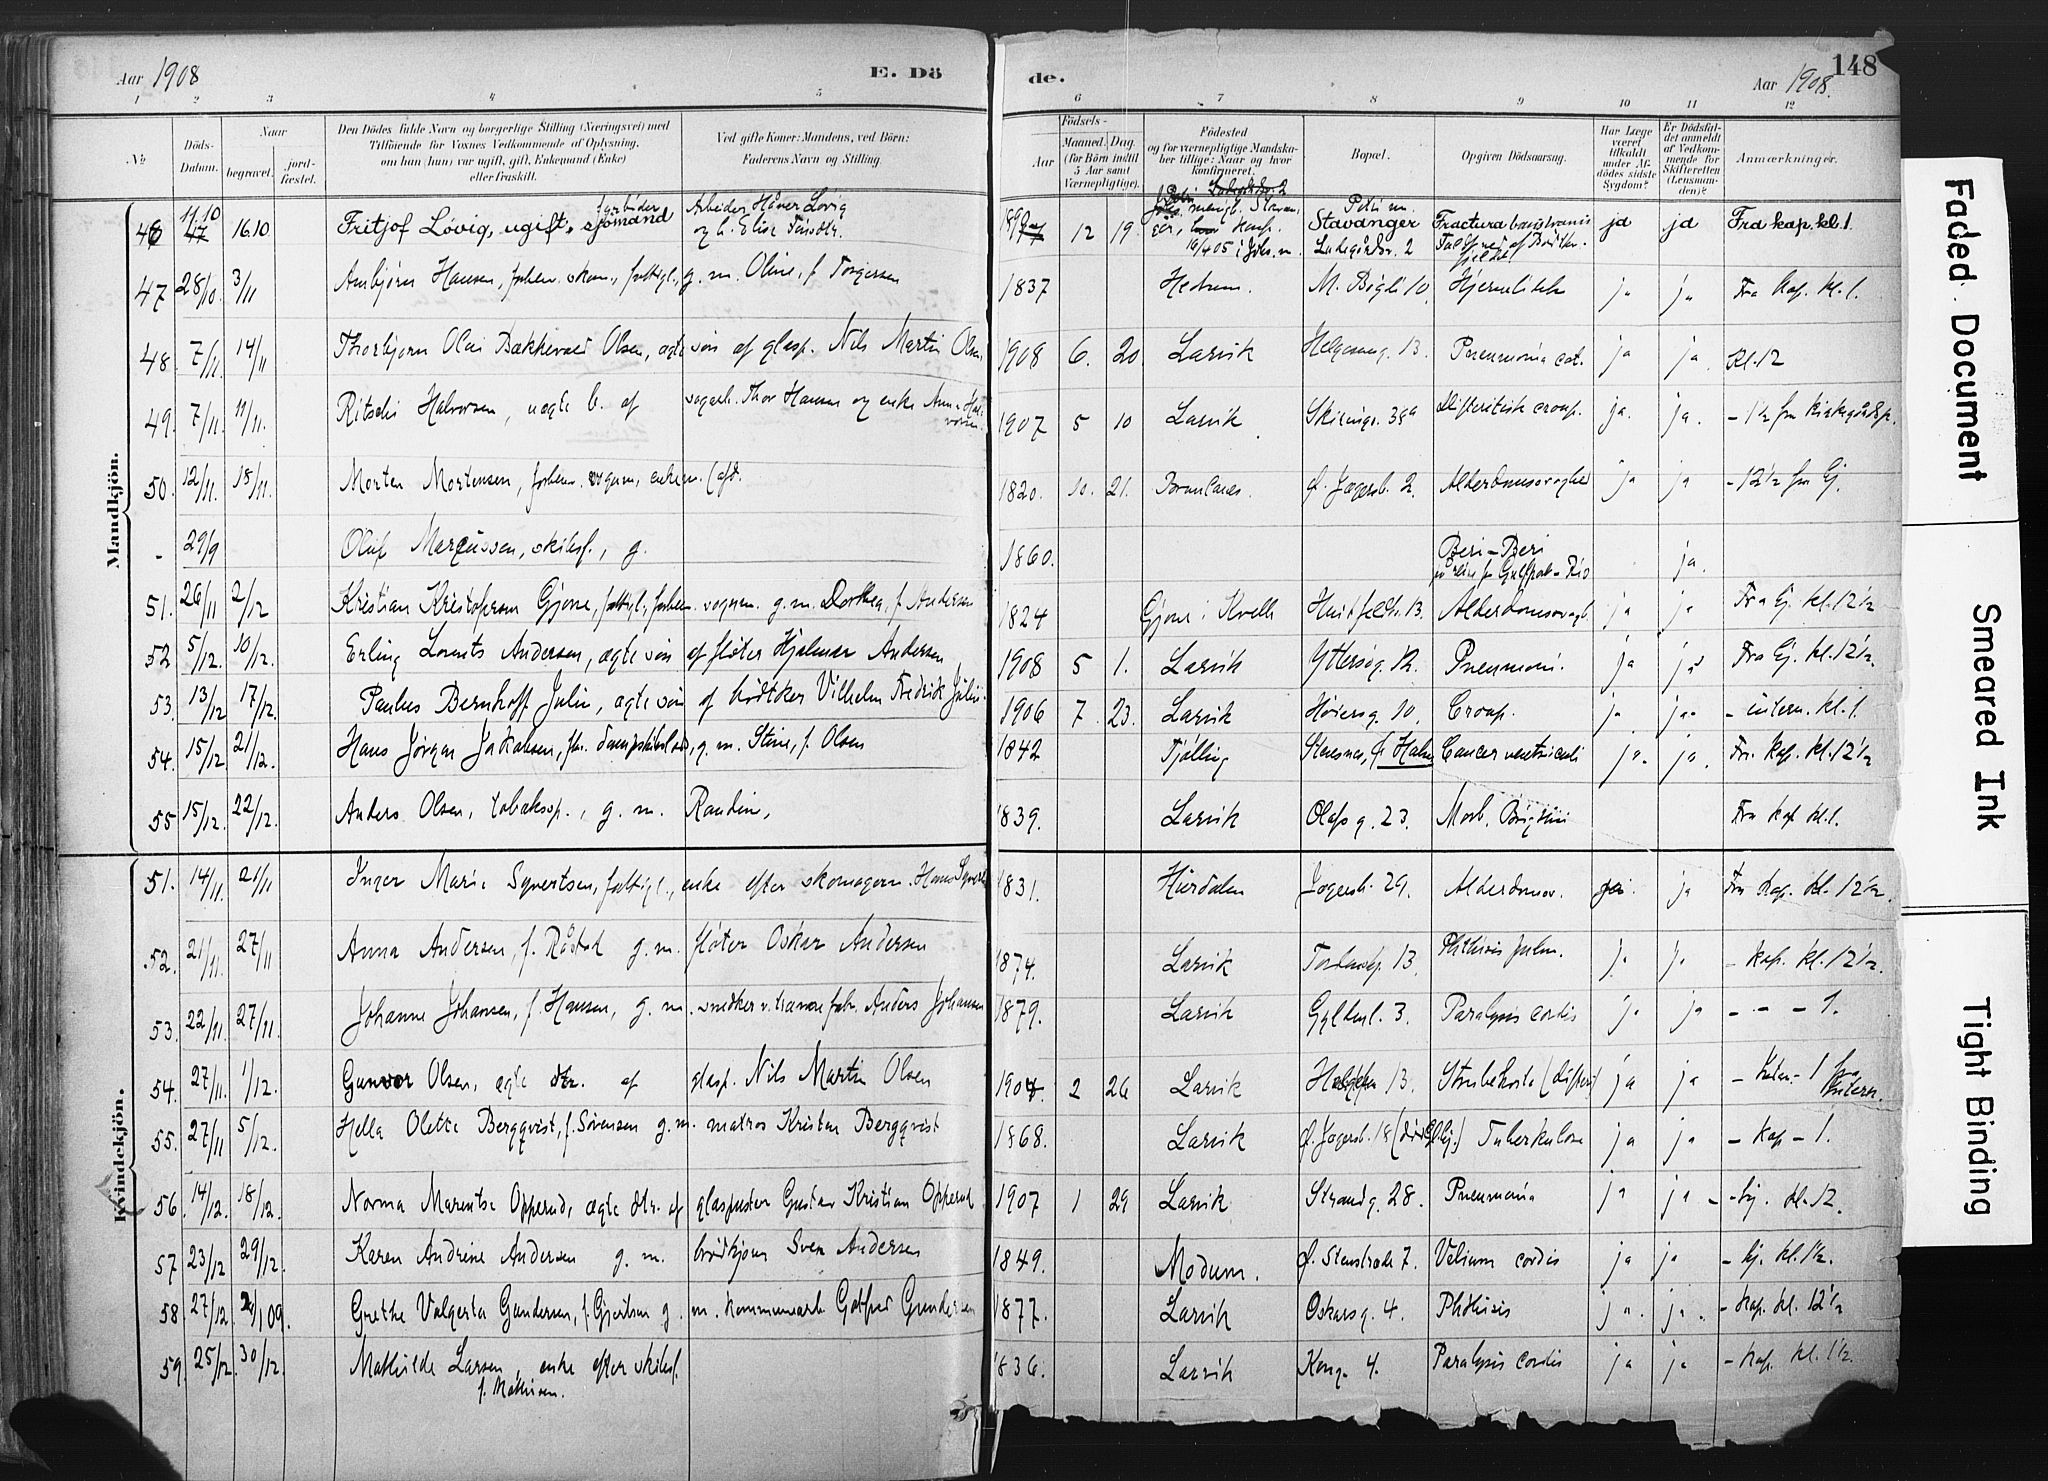 Aar 1908
E. Dö
de.
Aar 1908.
148
1 2 3 4 5 6 7 8 9 10 11 12
No
Döds-Datum.
Naar
begravet.
jord-fæstet.
Den Dödes fulde Navn og borgerlige Stilling (Næringsvei) med
Tilföiende for Voxnes Vedkommende af Oplysning,
om han (hun) var ugift, gift, Enkemand (Enke)
eller fraskilt.
Ved gifte Koner: Mandens, ved Börn:
Faderens Navn og Stilling.
Födsels-
Aar
Maaned. Dag.
(for Börn indtil
5 Aar samt
Værnepligtige).
Födested
og for værnepligtige Mandska-
ber tillige: Naar og hvor
konfirmeret.
Bopæl.
Opgiven Dödsaarsag.
Har Læge
været
tilkaldt
under Af-
dödes sidste
Sygdom?
Er Dödsfal-
det anmeldt
af Vedkom-
mende for
Skifteretten
(Lensman-
den)?
Anmærkninger.
Mandkjön.
46 11/10 16.10 Fritjof Løvig, ugift, sjømand Arbeider Håver Lovig 12 19 Stavanger Fractura ja ja Fra kap. kl. 1.
47 28/10 3/11 Anbjørn Hansen, forhen. skom., fattigl., g. m. Oline, f. Torgersen 1837 Hedrum. M. Bøgli 10 ja ja Fra Kap. kl. 1.
48. 7/11. 14/11 Thorbjørn Olai Bakkevold Olsen, ægte søn af glasp. Nils Martin Olsen 1908 6. 20. Larvik Helgesensg. 13. Pneumonia cat. ja ja. Kl. 12
49. 7/11. 11/11. Halvorsen, uægte b. af Thor Hansen og enke Anna Halvorsen 1907 5 10 Larvik. 38a Difteritisk croup. ja. ja. - 1½ fra kirkegårdskp.
50. 12/11. 18/11. Morten Mortensen, forhen. vognm, enkem. (aft. 1820. 10. 21. Brunlanes. Ø. Jægersb. 2. Alderdomssvaghed ja ja - 12½ fra Gj.
- 29/9 Oluf Marcussen, skibsf., g. 1860. Beri-Beri ja.
51. 26/11 2/12 Kristian Kristofersen Gjone, fattigl., forhen. vognm. g. m. Dorthea, f. Andersen 1824 Gjone i Kvelle Huitfeldtsg. 13. Alderdomssvagh. ja ja Fra Gj. kl. 12½
52 5/12. 10/12. Erling Lorents Andersen, ægte søn af fløter Hjalmar Andersen 1908 5 1. Larvik Yttersøg. 12. Pneumoni. ja ja Fra Gj. kl. 12½.
53. 13/12 17/12. Paulus Bernhoff Julin, ægte søn af bødtker Vilhelm Fredrik Julin. 1906 7. 23. Larvik Høiersg. 10. Croup. ja ja. - intern. kl. 1.
54. 15/12 21/12. Hans Jørgen Jakobsen, g. m. Stine, f. Olsen 1842 Tjølling Stavsnes, Cancer ventriculi ja. ja. Fra kap. kl. 12½
55 15/12. 22/12. Anders Olsen, tobaksop., g. m. Randine, 1839. Larvik Olafsg. 23. Morb. Brigthii Fra kap kl. 1.
Kvindekjön.
51. 14/11. 21/11 Inger Marie Syvertsen, fattigl., enke efter skomagerm. Hans Syvertsen 1831. Hurdalen Jegersb. 29. Alderdomsv. ja Fra Kap. kl. 12½.
52. 21/11. 27/11 Anna Andersen, f. Råstad g. m. fløter Oskar Andersen 1874. Larvik 13. Phthisis pulm. ja ja - kap. kl. 12½.
53. 22/11. 27/11. Johanne Johansen, f. Hansen, g. m. snedker v. trævarefabr. Anders Johansen 1879. Larvik Gyldenl. 3. Paralysis cordis ja ja - - - 1.
54. 27/11. 1/12. Gunvor Olsen, ægte dtr. af glasp. Nils Martin Olsen 1904 2 26 Larvik 13. Strubehoste (difteri) ja ja - 1 fra intern.
55. 27/11 5/12. Hella Olette Bergqvist, f. Sørensen g. m. matros Kristen Bergqvist 1868. Larvik Ø. Jegersb. 18 Tuberkulose ja ja - Kap - 1.
56. 14/12. 18/12. Norma Marentse Opperud, ægte dtr. af glaspuster Gustav Kristian Opperud 1907 1 29 Larvik Strandg. 28. Pneumonia ja ja - - Gj. kl. 12.
57 23/12 29/12. Karen Andrine Andersen g. m. brødkjører Sven Andersen 1849. Modum. Ø. Stenstrøde 7. Vitium cordis ja ja - Gj. kl. 1½.
58 27/12. 2/1 09. Grethe Valgerta Gundersen, f. g. m. kommunearb Gotfred Gundersen 1877. Larvik Oskarsg. 4. Phthisis ja. ja. - kap. kl. 12½
59. 25/12 30/12. Mathilde Larsen, enke efter skibsf. 1836. Larvik Kong. 4. Paralysis cordis ja ja - kap. kl. 1½.
f. Mathisen.
Faded Document
Smeared Ink
Tight Binding